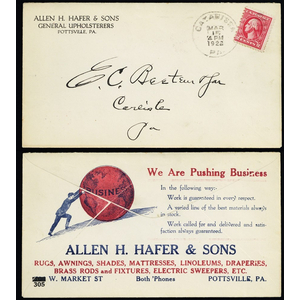 ALLEN H. HAFER & SONS
GENERAL UPHOLSTERERS
POTTSVILLE, PA.
MAR
2 PM
1922
PA.
E. C. Beetem & Son
Carlisle
Pa
We Are Pushing Business
In the following way:-
Work is guaranteed in every respect.
A varied line of the best materials always in stock.
Work called for and delivered and satisfaction always guaranteed.
BUSINESS
ALLEN H. HAFER & SONS
RUGS, AWNINGS, SHADES, MATTRESSES, LINOLEUMS, DRAPERIES,
BRASS RODS and FIXTURES, ELECTRIC SWEEPERS, ETC.
305 W. MARKET ST Both 'Phones POTTSVILLE, PA.